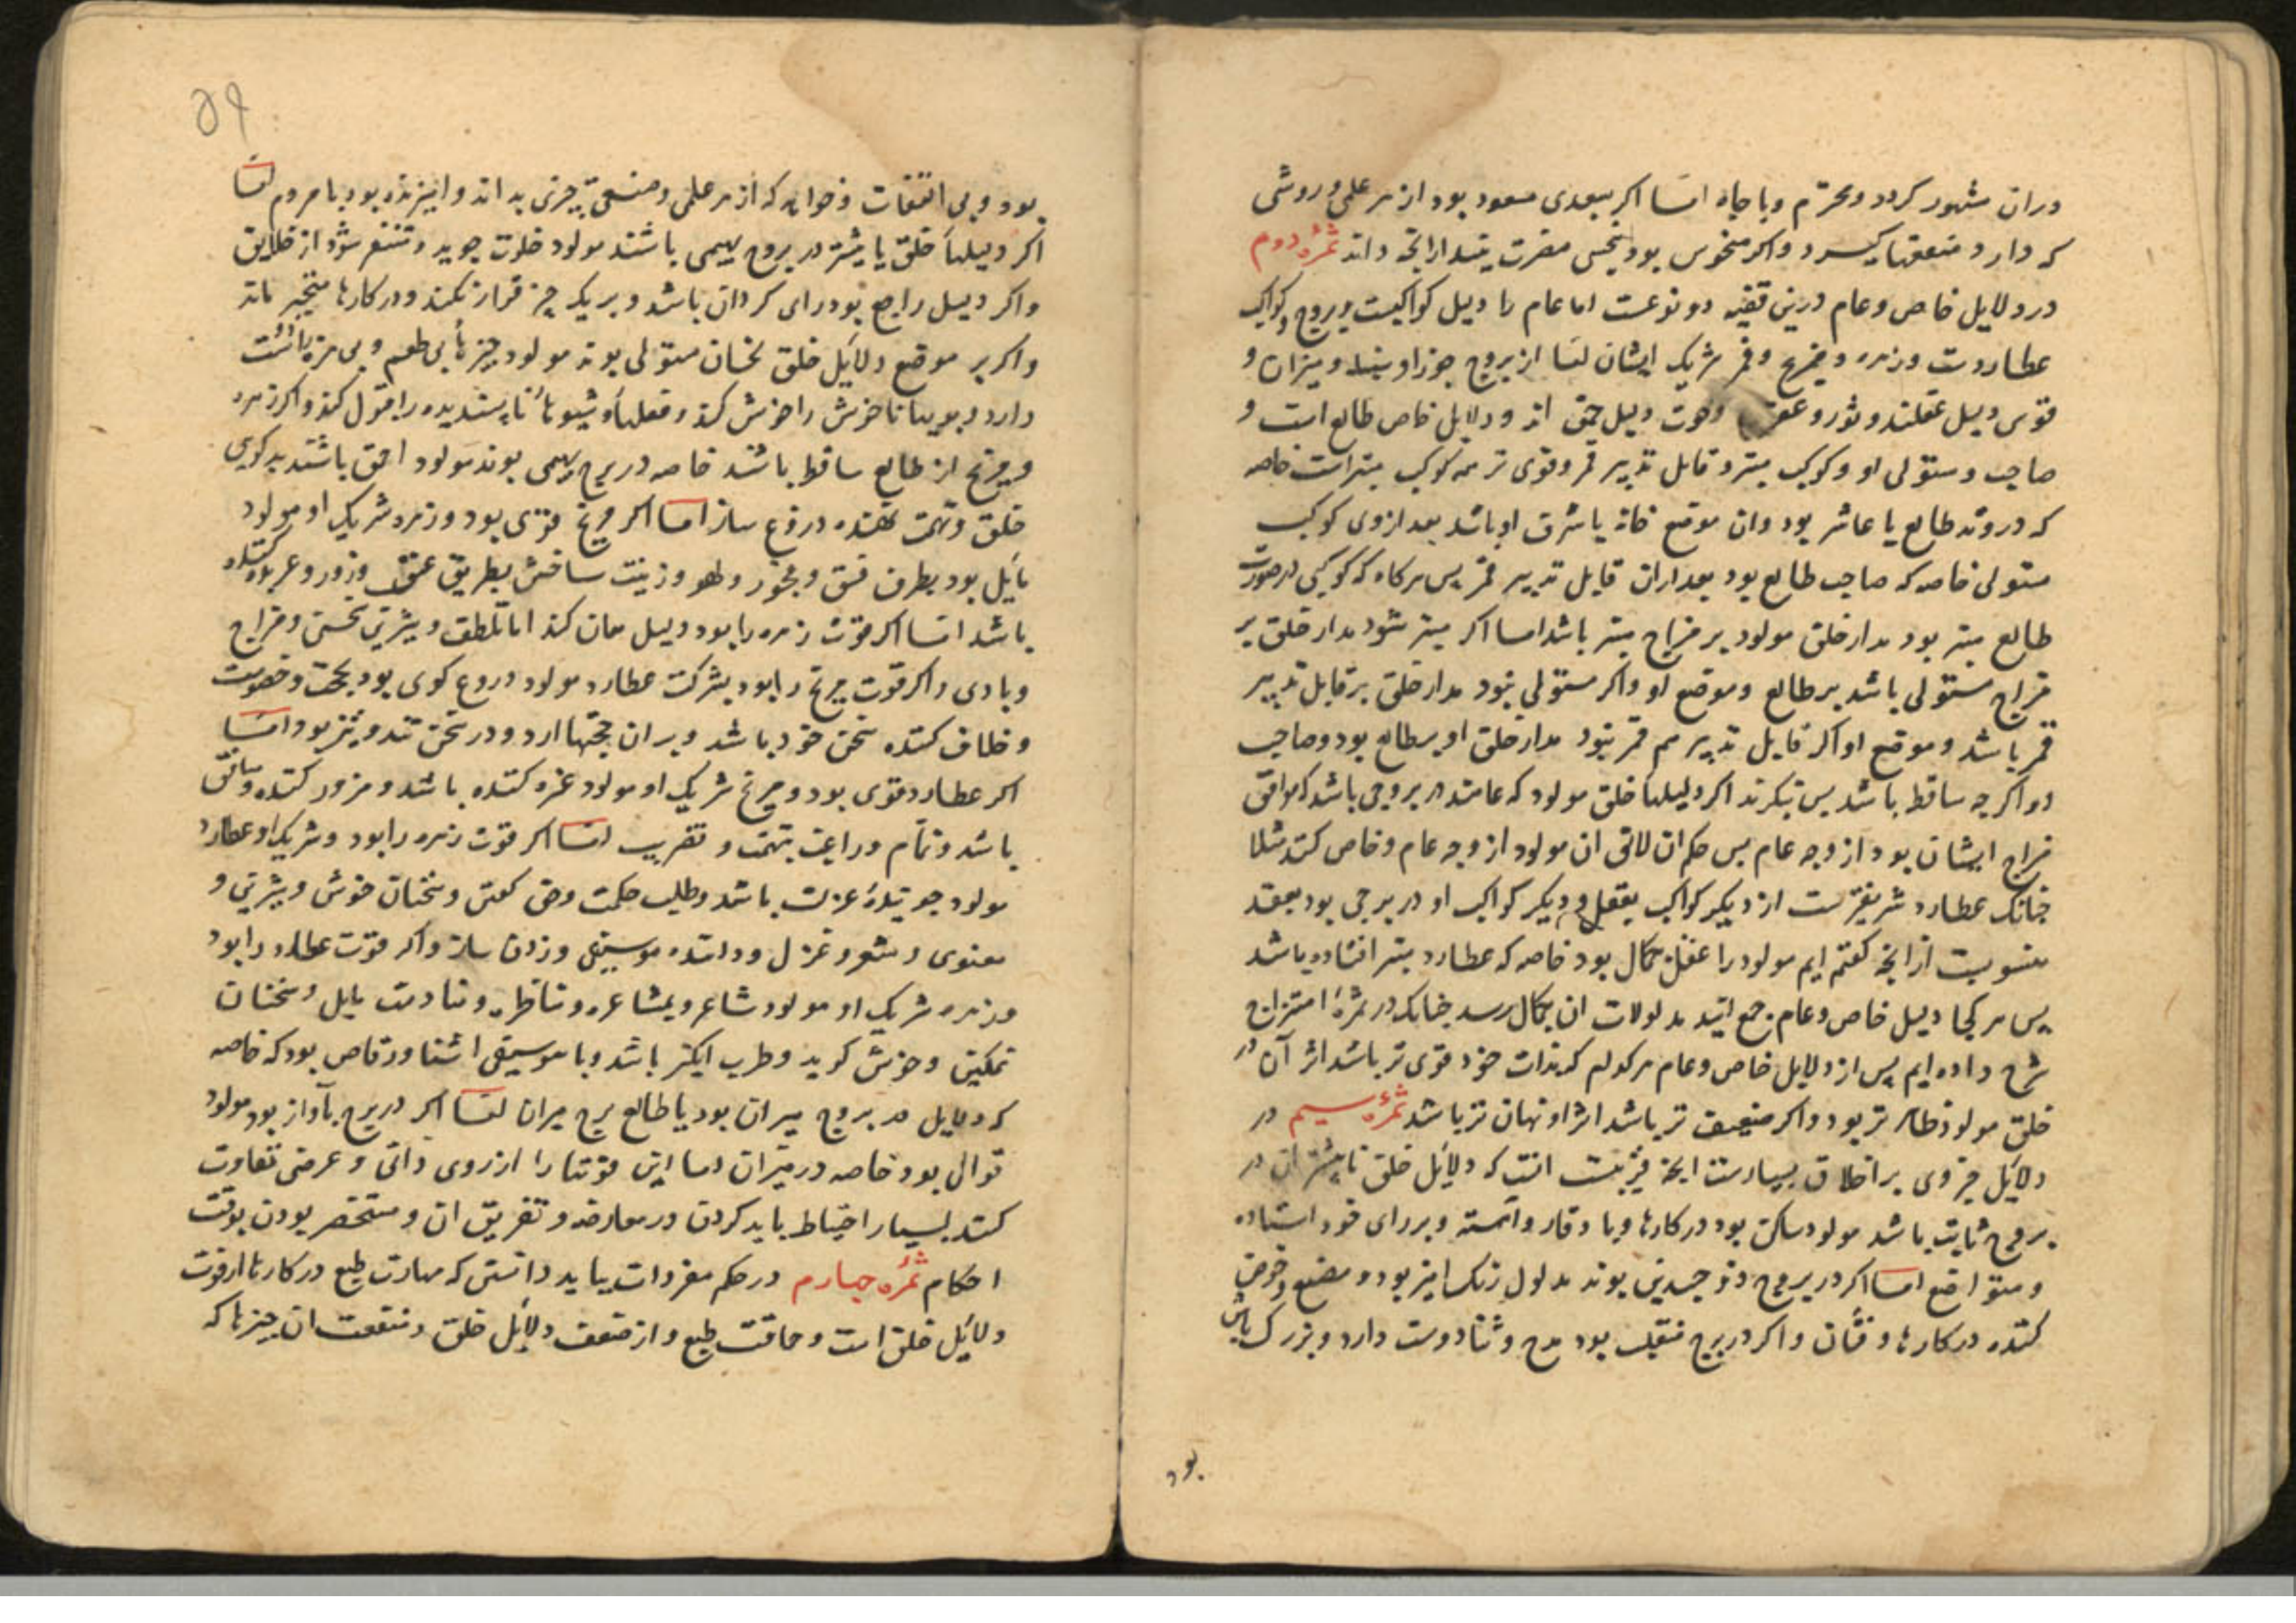 دران مشهور کردد ومحترم وبا جاه اما اکر بسعدی مسعود بود از هر علمی وروشی
که دارد منفعتها کیرد واکر منحوس بود بنحس مضرت بیند ازانچه داند ثمرهٔ دوم
در دلایل خاص وعام درین قضیه دو نوعست اما عام را دلیل کواکبست وبروج وکواکب
عطاردست وزهره ومریخ وقمر شریک ایشان اما از بروج جوزا وسنبله ومیزان و
قوس دلیل عقلند وثور وعقرب وحوت دلیل حمق اند ودلایل خاص طالع است و
صاحب ومستولی او وکوکب مبتز وقابل تدبیر قمر وقوی تر همه کوکب مبتزاست خاصه
که در وتد طالع یا عاشر بود وان موضع خانه یا شرف او باشد بعد ازوی کوکب
مستولی خاصه که صاحب طالع بود بعد ازان قابل تدبیر قمر پس هرکاه که کوکبی در صورت
طالع مبتز بود مدار خلق مولود بر مزاج مبتز باشد اما اکر مبتز نشود مدار خلق بر
مزاج مستولی باشد بر طالع وموضع او واکر مستولی نبود مدار خلق بر قابل تدبیر
قمر باشد وموضع او اکر قابل تدبیر هم قمر نبود مدار خلق او بر طالع بود وصاحب
او اکر چه ساقط باشد پس نکرند اکر دلیلها خلق مولود که عامند در بروجی باشد که موافق
مزاج ایشان بود از وجه عام پس حکم ان لایق ان مولود از وجه عام وخاص کند مثلا
چنانک عطارد شریفترست از دیکر کواکب بعقل ودیکر کواکب او در برجی بود بعقد
منسوبست ازانچه کفته ایم مولود را عقل بکمال بود خاصه که عطارد مبتز افتاده باشد
پس هر کجا دلیل خاص وعام جمع ایند مدلولات ان بکمال رسد چنانک در ثمرهٔ امتزاج
شرح داده ایم پس از دلایل خاص وعام هرکدام که بذات خود قوی تر باشد اثر آن در
خلق مولود ظاهر تر بود واکر ضعیف تر باشد اثر او نهان تر باشد ثمرهٔ سیم در
دلایل جزوی بر اخلاق بسیارست انچه قریبست انست که دلایل خلق تا بیشتر ان در
بروج ثابت باشد مولود ساکن بود در کارها وبا وقار واهسته وبر رای خود استاده
ومتواضع اما اکر در بروج ذو جسدین بوند مدلول رنک امیز بود ومصنع وخوض
کننده در کارها وفتان واکر در برج منقلب بود مدح وثنا دوست دارد وبزرک باش
بود
۵۹
بود وبی التفات وخواهد که از هر علمی وصنعتی چیزی بداند وامیزنده بود با مردم اما
اکر دلیلها خلق یا بیشتر در بروج بهیمی باشند مولود خلوت جوید ومتنفر شود از خلایق
واکر دلیل راجع بود رای کردان باشد وبر یک چیز قرار نکند ودر کارها متحیر ماند
واکر بر موضع دلایل خلق نحسان مستولی بوند مولود چیزها بی طعم وبی مزه دوست
دارد وبویها ناخوش را خوش کند وفعلها وشیوها ناپسندیده را قبول کند واکر زهره
ومریخ از طالع ساقط باشند خاصه در برج بهیمی بوند مولود احمق باشند بدکوی
خلق وتهمت نهنده دروغ ساز اما اکر مریخ قوی بود وزهره شریک او مولود
مایل بود بطرف فسق وفجور ولهو وزینت ساختن بطریق عنف وزور وعربده کننده
باشد اما اکر قوت زهره را بود دلیل همان کند اما بلطف وشیرین سخنی ومزاج
وبادی واکر قوت مریخ را بود بشرکت عطارد مولود دروغ کوی بود بحث وخصومت
وخلاف کننده سخن خود باشد وبران حجتها ارد ودر سخن تند وتیز بود اما
اکر عطارد قوی بود ومریخ شریک او مولود غره کننده باشد ومزور کننده ومنافق
باشد ونمام وراغب بتهمت وتقریب اما اکر قوت زهره را بود وشریک او عطارد
مولود جویندهٔ عزلت باشد وطلب حکمت وحق کفتن وسخنان خوش وشیرین و
معنوی وشعر وغزل وداننده موسیقی وزدن ساز واکر قوت عطارد را بود
وزهره شریک او مولود شاعر وبمشاعره ومناظره ومنادمت مایل وسخنان
نمکین وخوش کوید وطرب انکیز باشد وبا موسیقی اشنا ورقاص بود که خاصه
که دلایل در بروج میزان بود یا طالع برج میزان اما اکر در برج باواز بود مولود
قوال بود خاصه در میزان اما این قوتها را از روی ذاتی وعرضی تفاوت
کنند بسیار احتیاط باید کردن در معارضه وتفریق ان ومستحضر بودن بوقت
احکام ثمرهٔ چهارم در حکم مفردات بباید دانستن که مهارت طبع در کارها از قوت
دلایل خلق است وحماقت طبع واز ضعف دلایل خلق ومنفعت ان چیزها که